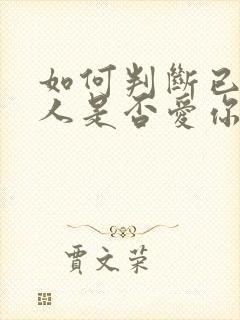 如何判斷已
人是否愛你
賈文荣